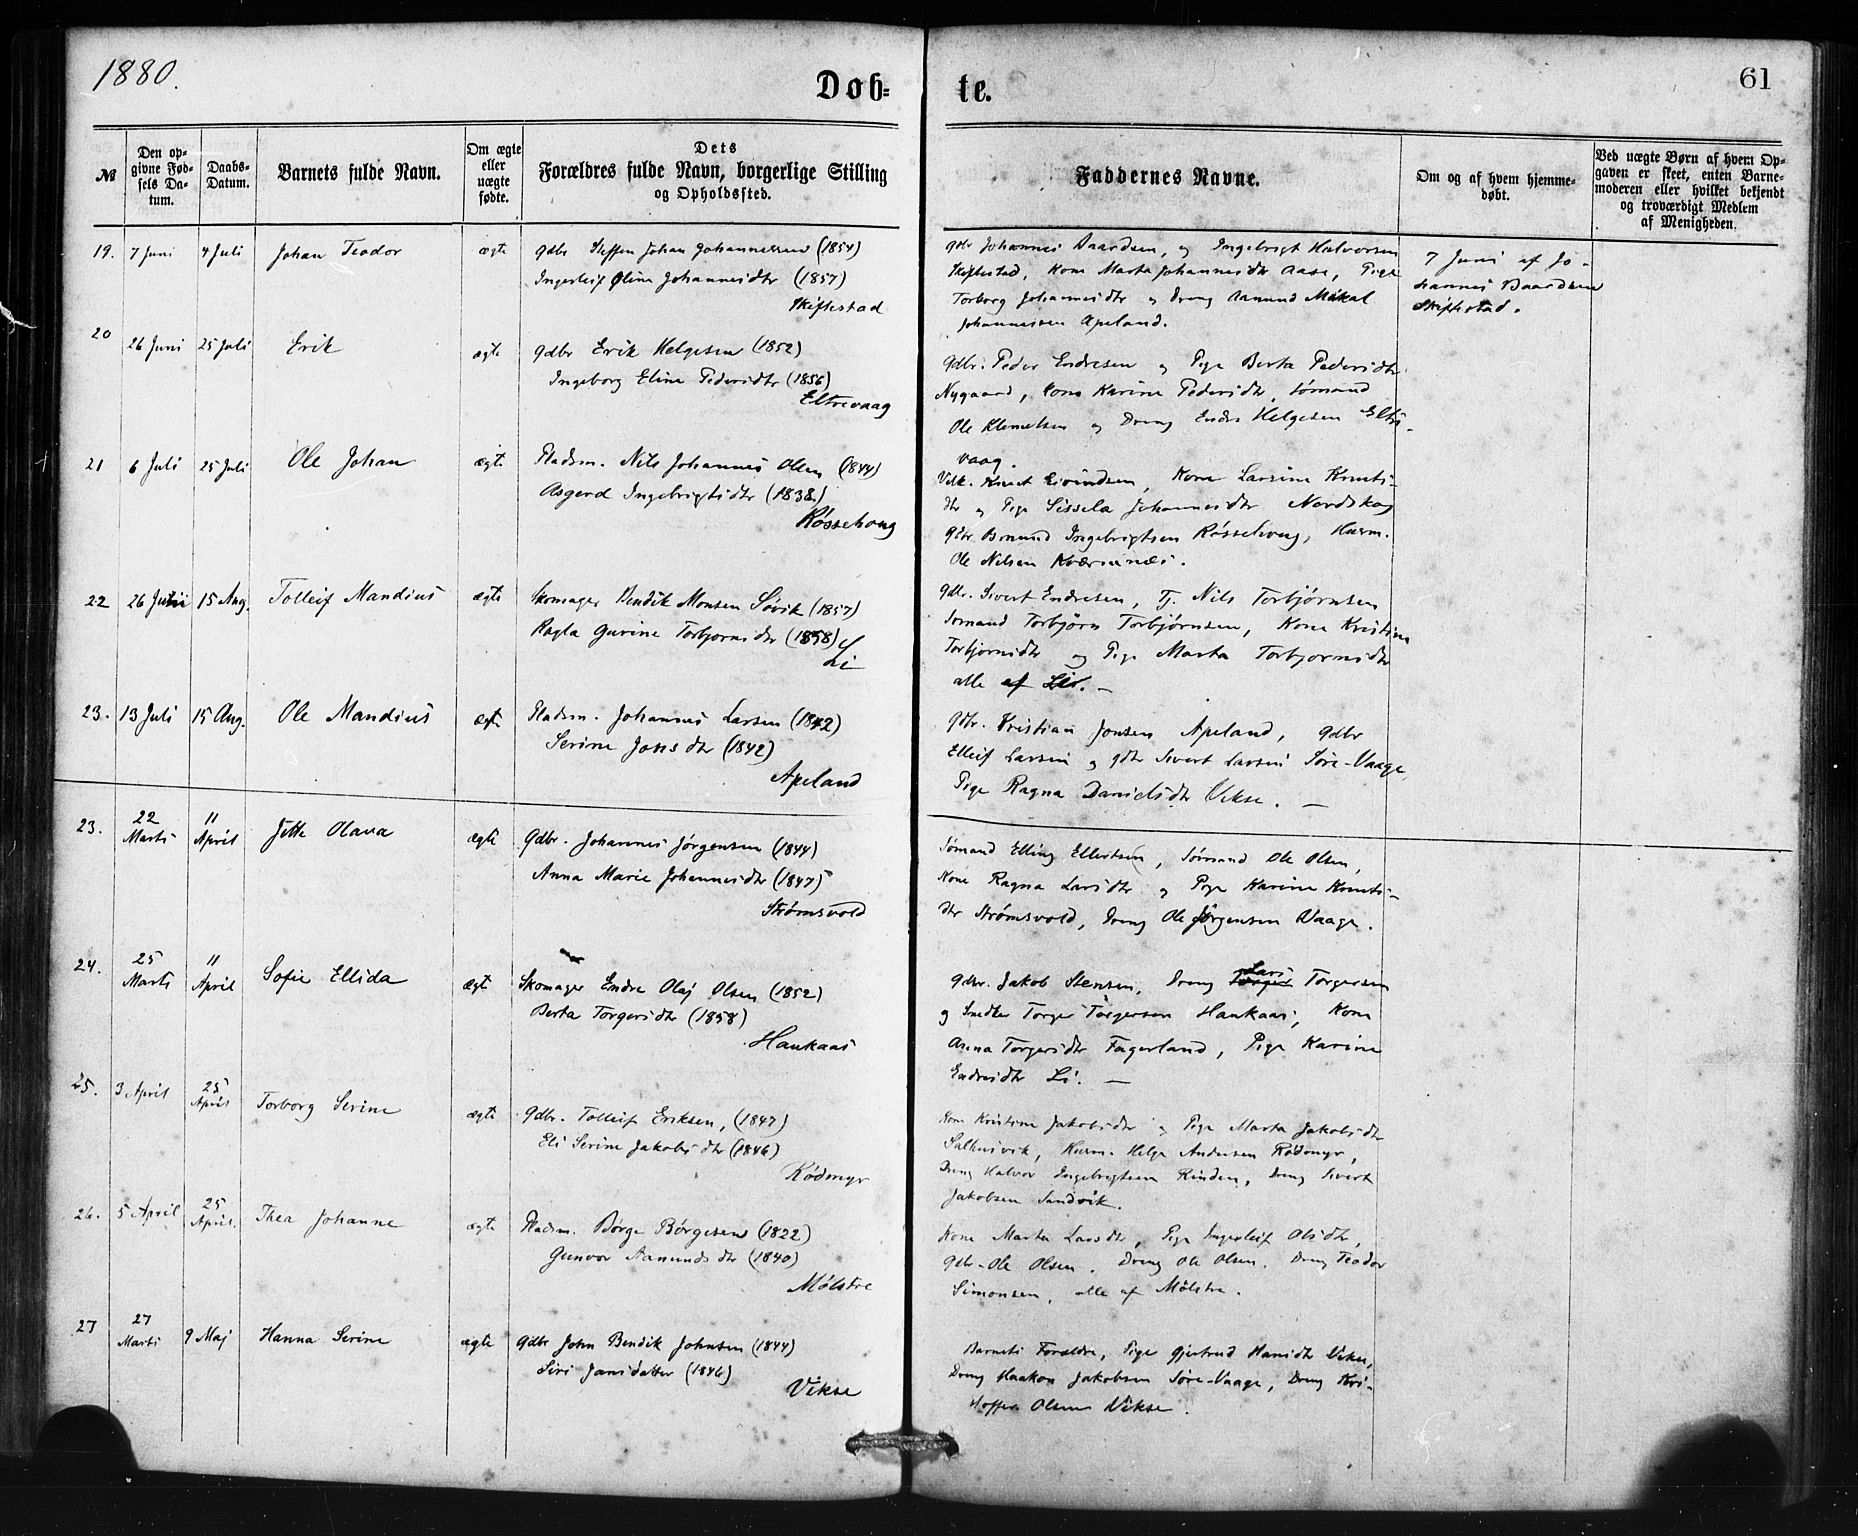 1880.
Døb-
te.
61
№
Den op-
givne Fød-
sels Da-
tum.
Daabs-
Datum.
Barnets fulde Navn.
Om ægte
eller
uægte
fødte.
Dets
Forældres fulde Navn, borgerlige Stilling
og Opholdssted.
Faddernes Navne.
Om og af hvem hjemme-
døbt.
Ved uægte Børn af hvem Op-
gaven er skeet, enten Barne-
moderen eller hvilket bekjendt
og troværdigt Medlem
af Menigheden.
19. 7 Juni 4 Juli Johan Teodor ægte gdbr Steffen Johan Johannessen (1854)
Ingerleif Oline Johannesdtr (1857)
Skiftestad
gdbr Johannes Baardsen, og Ingebrigt Halvorsen
Skiftestad, Kone Marta Johannesdtr Aase, Pige
Torborg Johannesdtr og Dreng Aamund Mikal
Johannessen Apeland.
7 Juni af Jo-
hannes Baardsen
Skiftestad.
20 26 Juni 25 Juli Erik ægte gdbr Erik Helgesen (1852)
Ingeborg Eline Pedersdtr (1856)
Eltrevaag
gdbr. Peder Endresen og Pige Berta Pedersdtr
Nygaard, Kone Karine Pedersdtr, Sømand
Ole Klemetsen og Dreng Endre Helgesen Eltre-
vaag.
21 6 Juli 25 Juli Ole Johan ægte Pladsm. Nils Johannes Olsen (1844)
Asgerd Ingebrigtsdtr (1838.)
Røssehaug
Knut Eivindsen, Kone Larsine Knuts-
dtr og Pige Sissela Johannesdtr Nordskog
gdbr. Ingebrigtsen Røssehaug, Husm.
Ole Nilsen Kværnenæs.
22 26 15 Aug. Tolleif Mandius ægte Skomager Bendik Monsen Søvik (1857)
Ragla Gurine Torbjørnsdtr (1858)
Li
gdbr. Sivert Endresen, Tj. Nils Torbjørnsen
Sømand Torbjørn Torbjørnsen, Kone Kristine
Torbjørnsdtr og Pige Marta Torbjørnsdtr
alle af Li. —
23. 13 Juli 15 Aug. Ole Mandius ægte Pladsm. Johannes Larsen (1842)
Serine Jonsdtr (1842)
Apeland
gdbr. Kristian Jonsen Apeland, gdbr
Elleif Larsen og gdbr Sivert Larsen Søre-Vaage,
Pige Ragna Danielsdtr Vikse. —
23. 22 Marts 11 April Jette Olava ægte gdbr. Johannes Jørgensen (1844)
Anna Marie Johannesdtr (1847)
Strømsvold
Sømand Elling Ellertsen, Sømand Ole Olsen,
Kone Ragna Larsdtr og Pige Karine Knuts-
dtr Strømsvold, Dreng Ole Jørgensen Vaage.
24. 25 Marts 11 April Sofie Ellida ægte Skomager Endre Olaj Olsen (1852)
Berta Torgersdtr (1858)
Haukaas
gdbr. Jakob Stensen, Dreng Lars Torgersen
og Smedker Torger Torgersen Haukaas, Kone
Anna Torgersdtr Fagerland, Pige Karine
Endresdtr Li. —
25. 3 April 25 April Torborg Serine ægte gdbr. Tolleif Eriksen, (1847)
Eli Serine Jakobsdtr (1846)
Rødmyr
Kone Kristine Jakobsdtr og Pige Marta Jakobsdtr
Husm. Helge Andersen Rødmyr,
Dreng Halvor Ingebrigtsen Rinden, Dreng Sivert
Jakobsen Sandvik.
26. 5 April 25 April. Thea Johanne ægte Pladsm. Børge Børgesen (1822)
Gunvor Aamundsdtr (1840)
Mølstre
Kone Marta Larsdtr, Pige Ingerleif Olsdtr,
gdbr. Ole Olsen, Dreng Ole Olsen, Dreng Teodor
Simonsen, alle af Mølstre.
27 27 Marts 9 Maj Hanna Serine ægte gdbr John Bendik Johnsen (1844)
Siri Jansdatter (1846)
Vikse
Barnets Forældre, Pige Gjertrud Hansdtr Vikse,
Dreng Haakon Jakobsen Søre-Vaage, Dreng Kri-
stoffer Olsen Vikse.